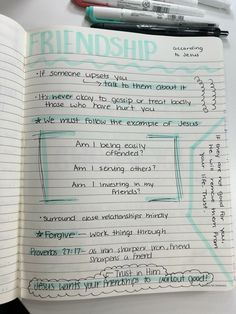 FRIENDSHIP
according
to Jesus
· If someone upsets you
↳ talk to them about it
· It's never okay to gossip or treat badly
those who have hurt you
★ We must follow the example of Jesus
Am I being easily
offended?
Am I serving others?
Am I investing in my
friends?
· Surround close relationships mindly
★ Forgive - work things through
Proverbs 27:17 - as iron sharpens iron, friend
sharpens a friend
Trust in Him
Jesus wants your friendships to workout good!
If they are not good for you,
He will remove them from
your life, trust